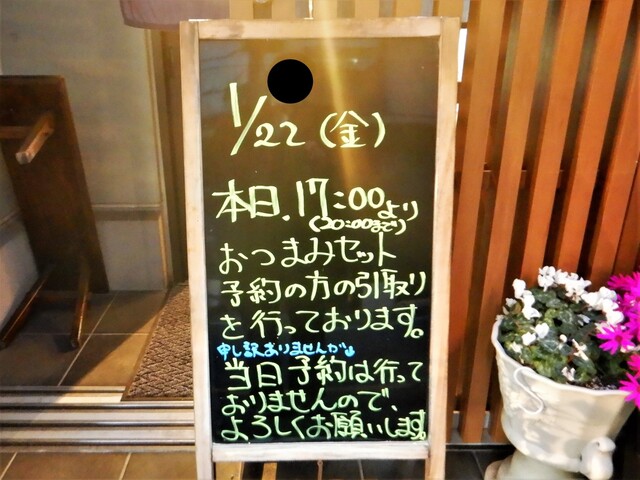 1/22（金）
本日、17:00より
（20:00まで）
おつまみセット
予約の方の引取り
を行っております。
申し訳ありませんが、
当日予約は行って
おりませんので、
よろしくお願いします。